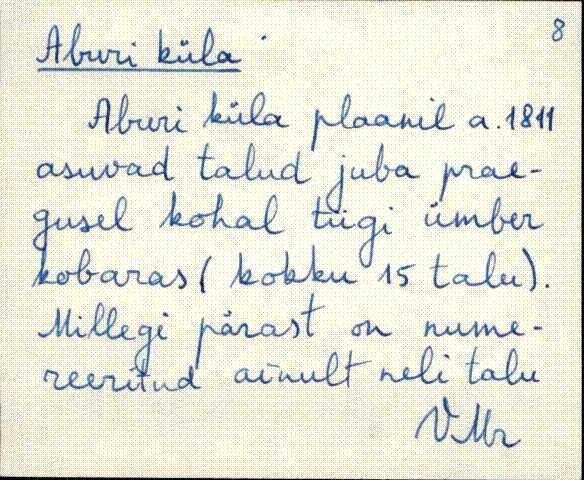 8
Aburi küla
Aburi küla plaanil a. 1811
asuvad talud juba prae-
gusel kohal tiigi ümber
kobaras (kokku 15 talu).
Millegi pärast on nume-
reeritud ainult neli talu
VMr